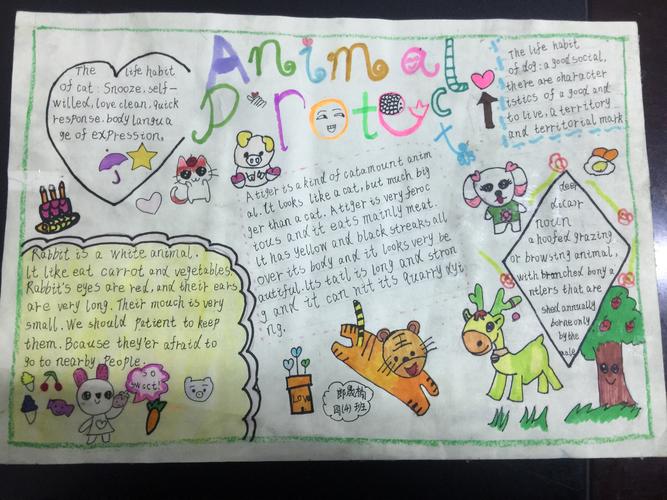 Animal
Protect
The life habit
of cat: Snooze. self-
willed, love clean. quick
response. body langua
ge of expression.
The life habit
of dog: a good social,
there are character
istics of a good and
to live, a territory
and territorial mark
A tiger is a kind of catamount anim
al. It looks like a cat, but much big
ger than a cat. A tiger is very feroc
ious and it eats mainly meat.
It has yellow and black streaks all
over its body and it looks very be
autiful. Its tail is long and stron
g and it can hit it's quarry dyi
ng.
Rabbit is a white animal.
It like eat carrot and vegetables
Rabbit's eyes are red, and their ears
are very long. Their mouch is very
small. We should patient to keep
them. Bcause they'er afraid to
go to nearby People.
SO
SWEET!
LOVE
四(4)班
deer
noun
a hoofed grazing
or browsing animal,
with branched bony a
ntlers that are
shed annually
borne only
by the
male